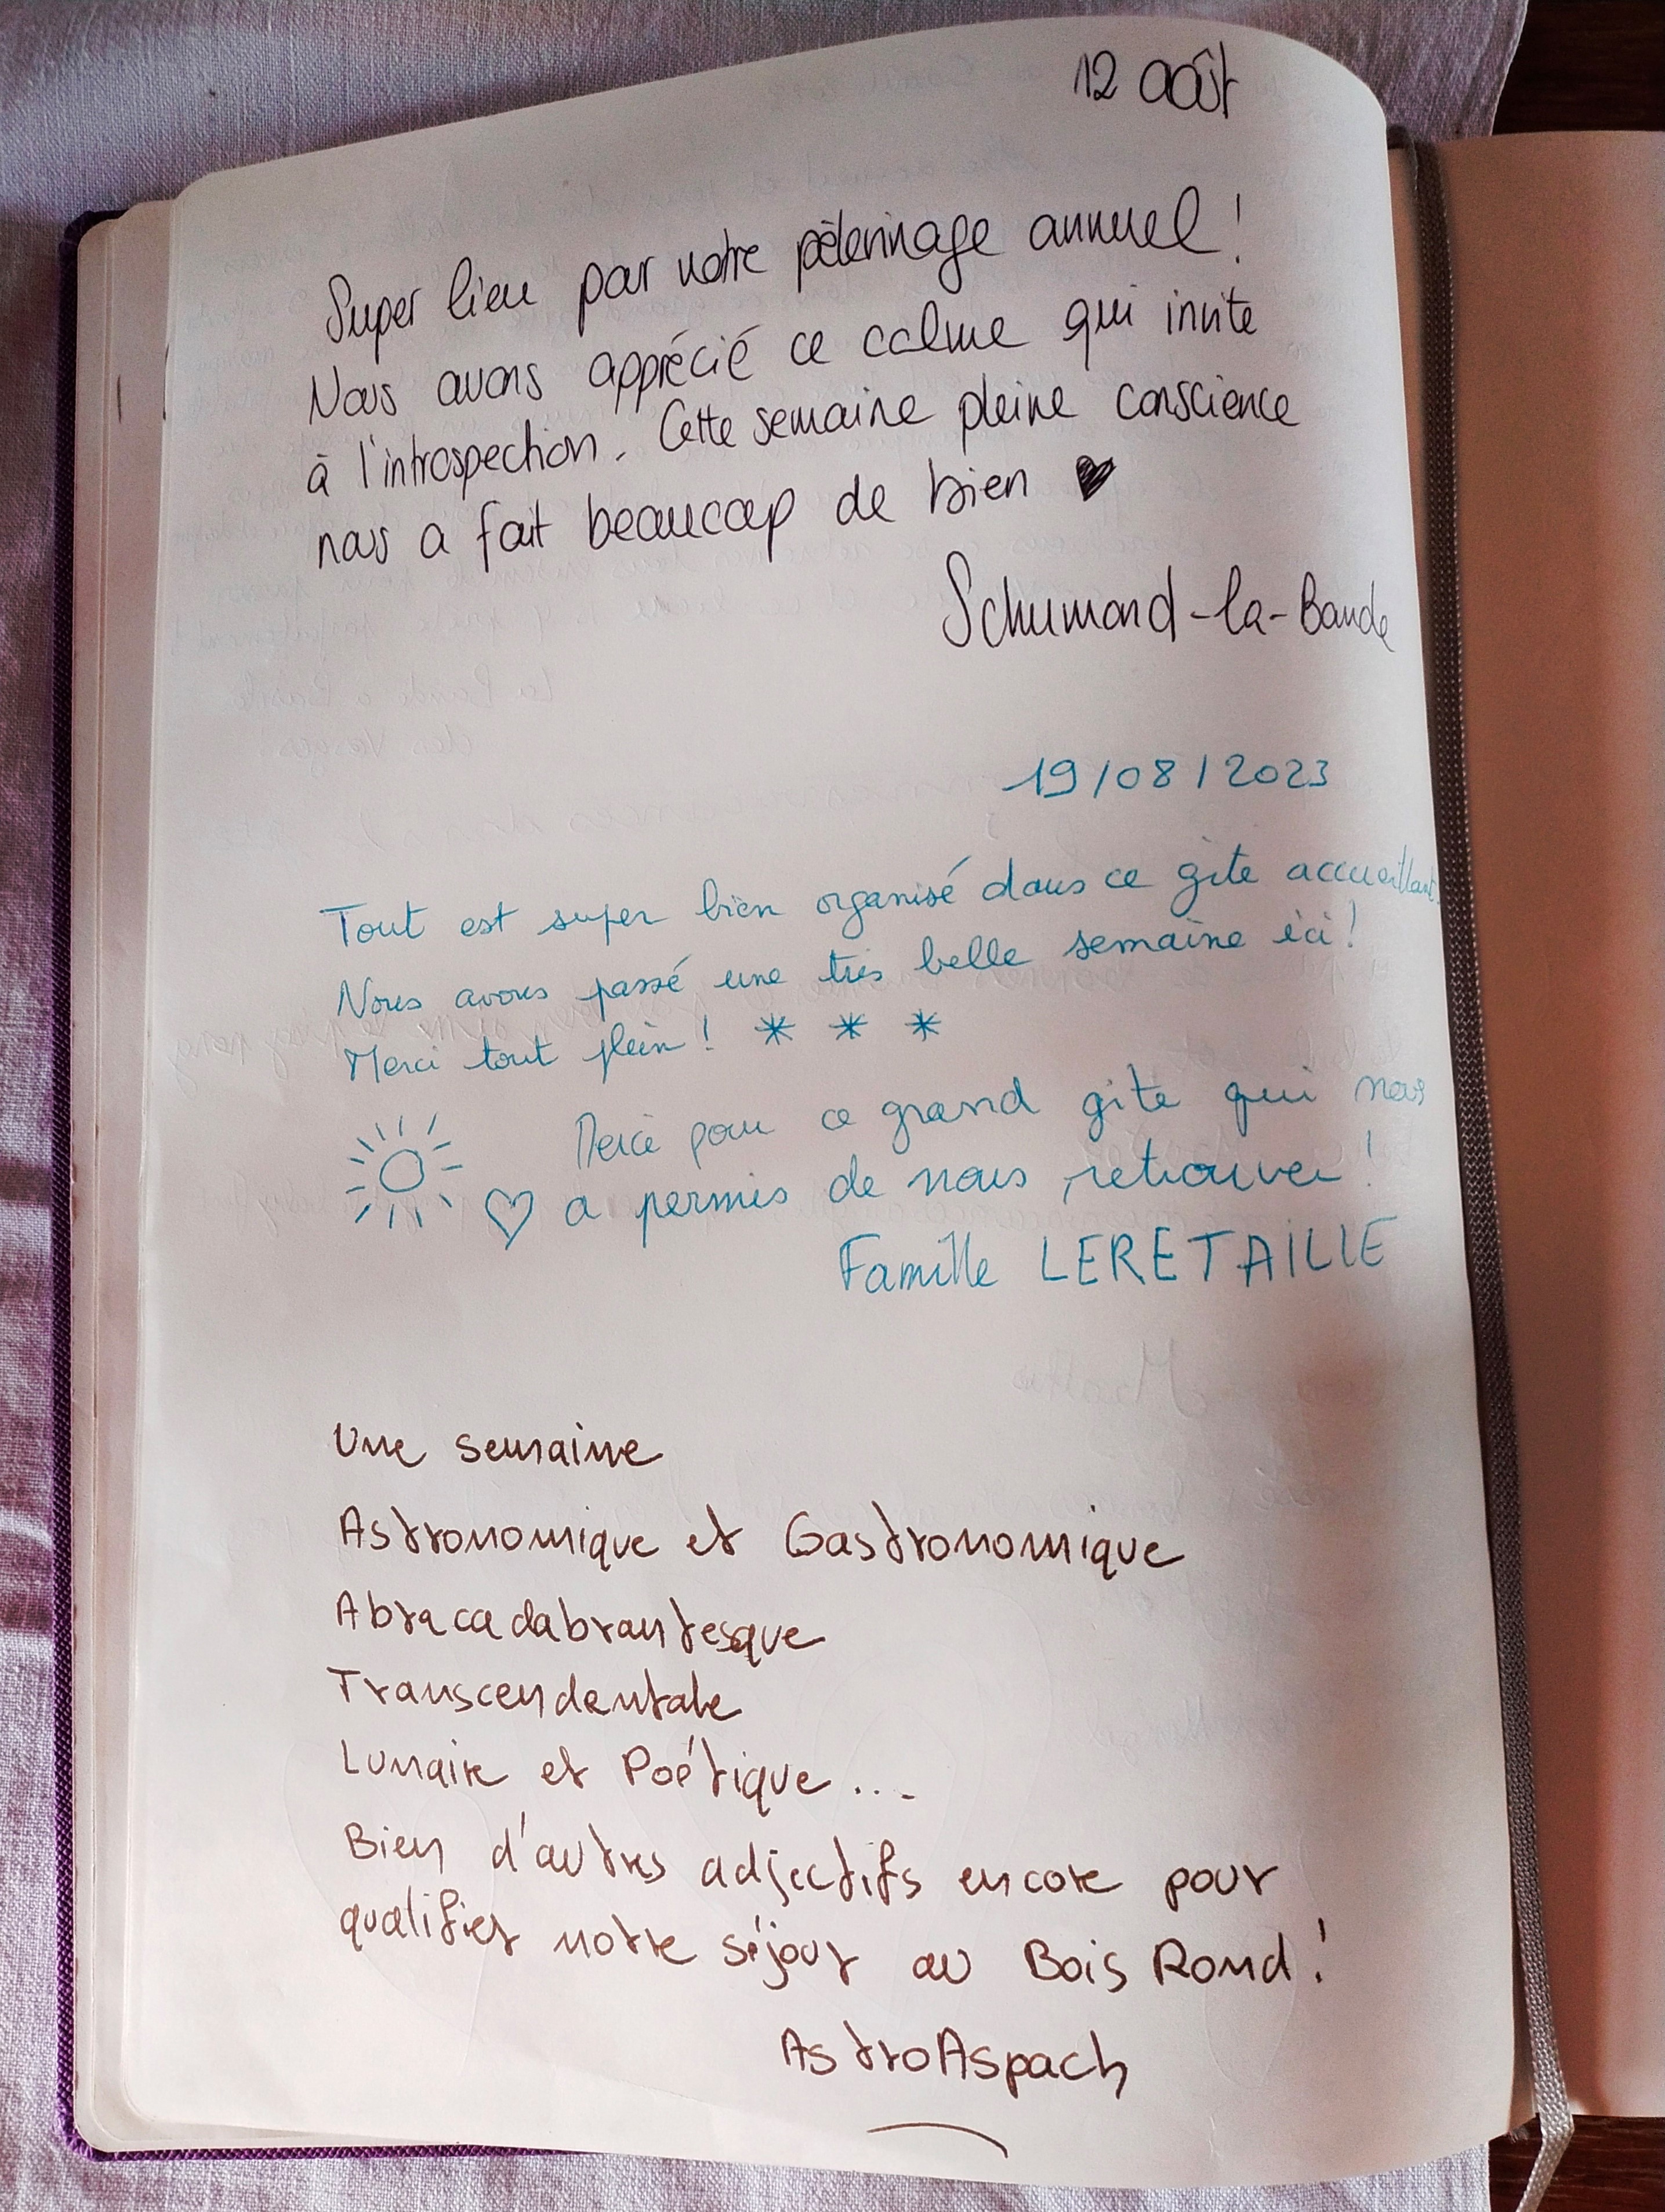 12 août
Super lieu pour notre pèlerinage annuel !
Nous avons apprécié ce calme qui invite
à l'introspection. Cette semaine pleine conscience
nous a fait beaucoup de bien ♥
Schumond-la-Bande
19/08/2023
Tout est super bien organisé dans ce gîte accueillant.
Nous avons passé une très belle semaine ici !
Merci tout plein ! * * *
Merci pour ce grand gîte qui nous
♡ a permis de nous retrouver !
Famille LERETAILLE
Une semaine
Astronomique et Gastronomique
Abracadabrantesque
Transcendentale
Lunaire et Poétique ...
Bien d'autres adjectifs encore pour
qualifier notre séjour au Bois Rond !
AstroAspach